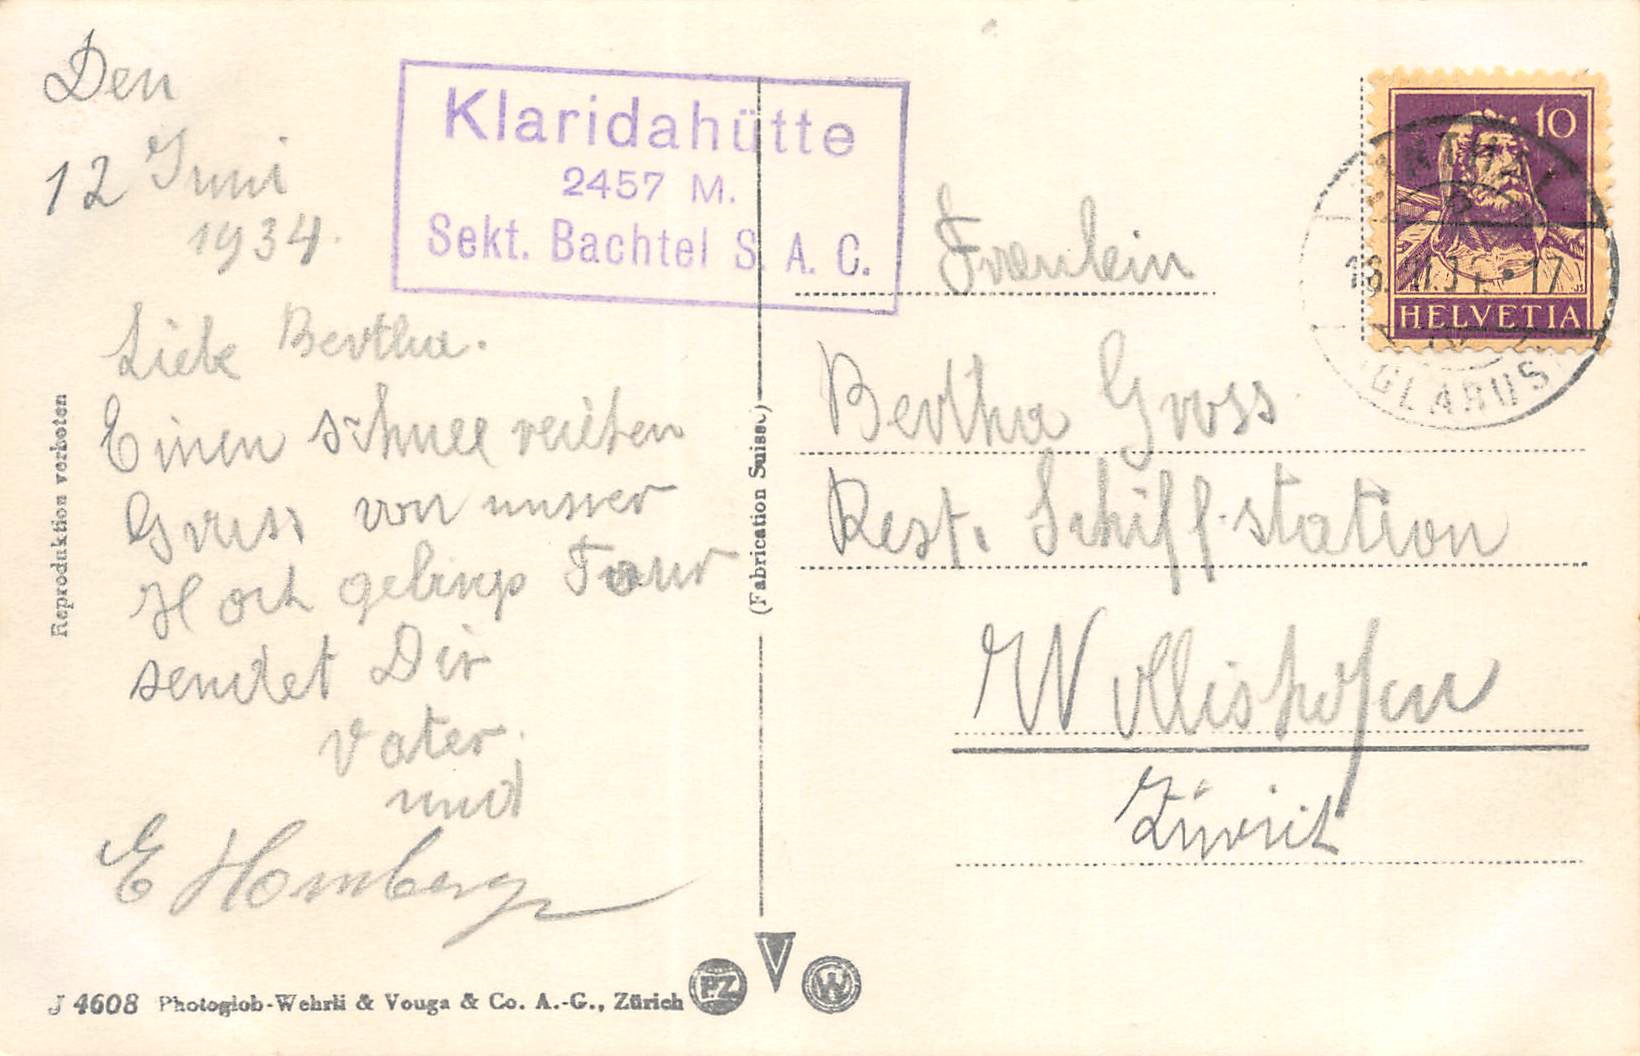 Den
12 Juni
1934.
Klaridahütte
2457 M.
Sekt. Bachtel S. A. C.
Liebe Bertha.
Einen schnee reichen
Gruss von unser
Hoch gebirgs Tour
sendet Dir
Vater.
und
E Homberger
Reproduktion verboten
(Fabrication Suisse)
10
HELVETIA
GLARUS
Freulein
Bertha Gross
Rest. Schiff-station
Wollishofen
Zürich
J 4608 Photoglob-Wehrli & Vouga & Co. A.-G., Zürich
PZ V W